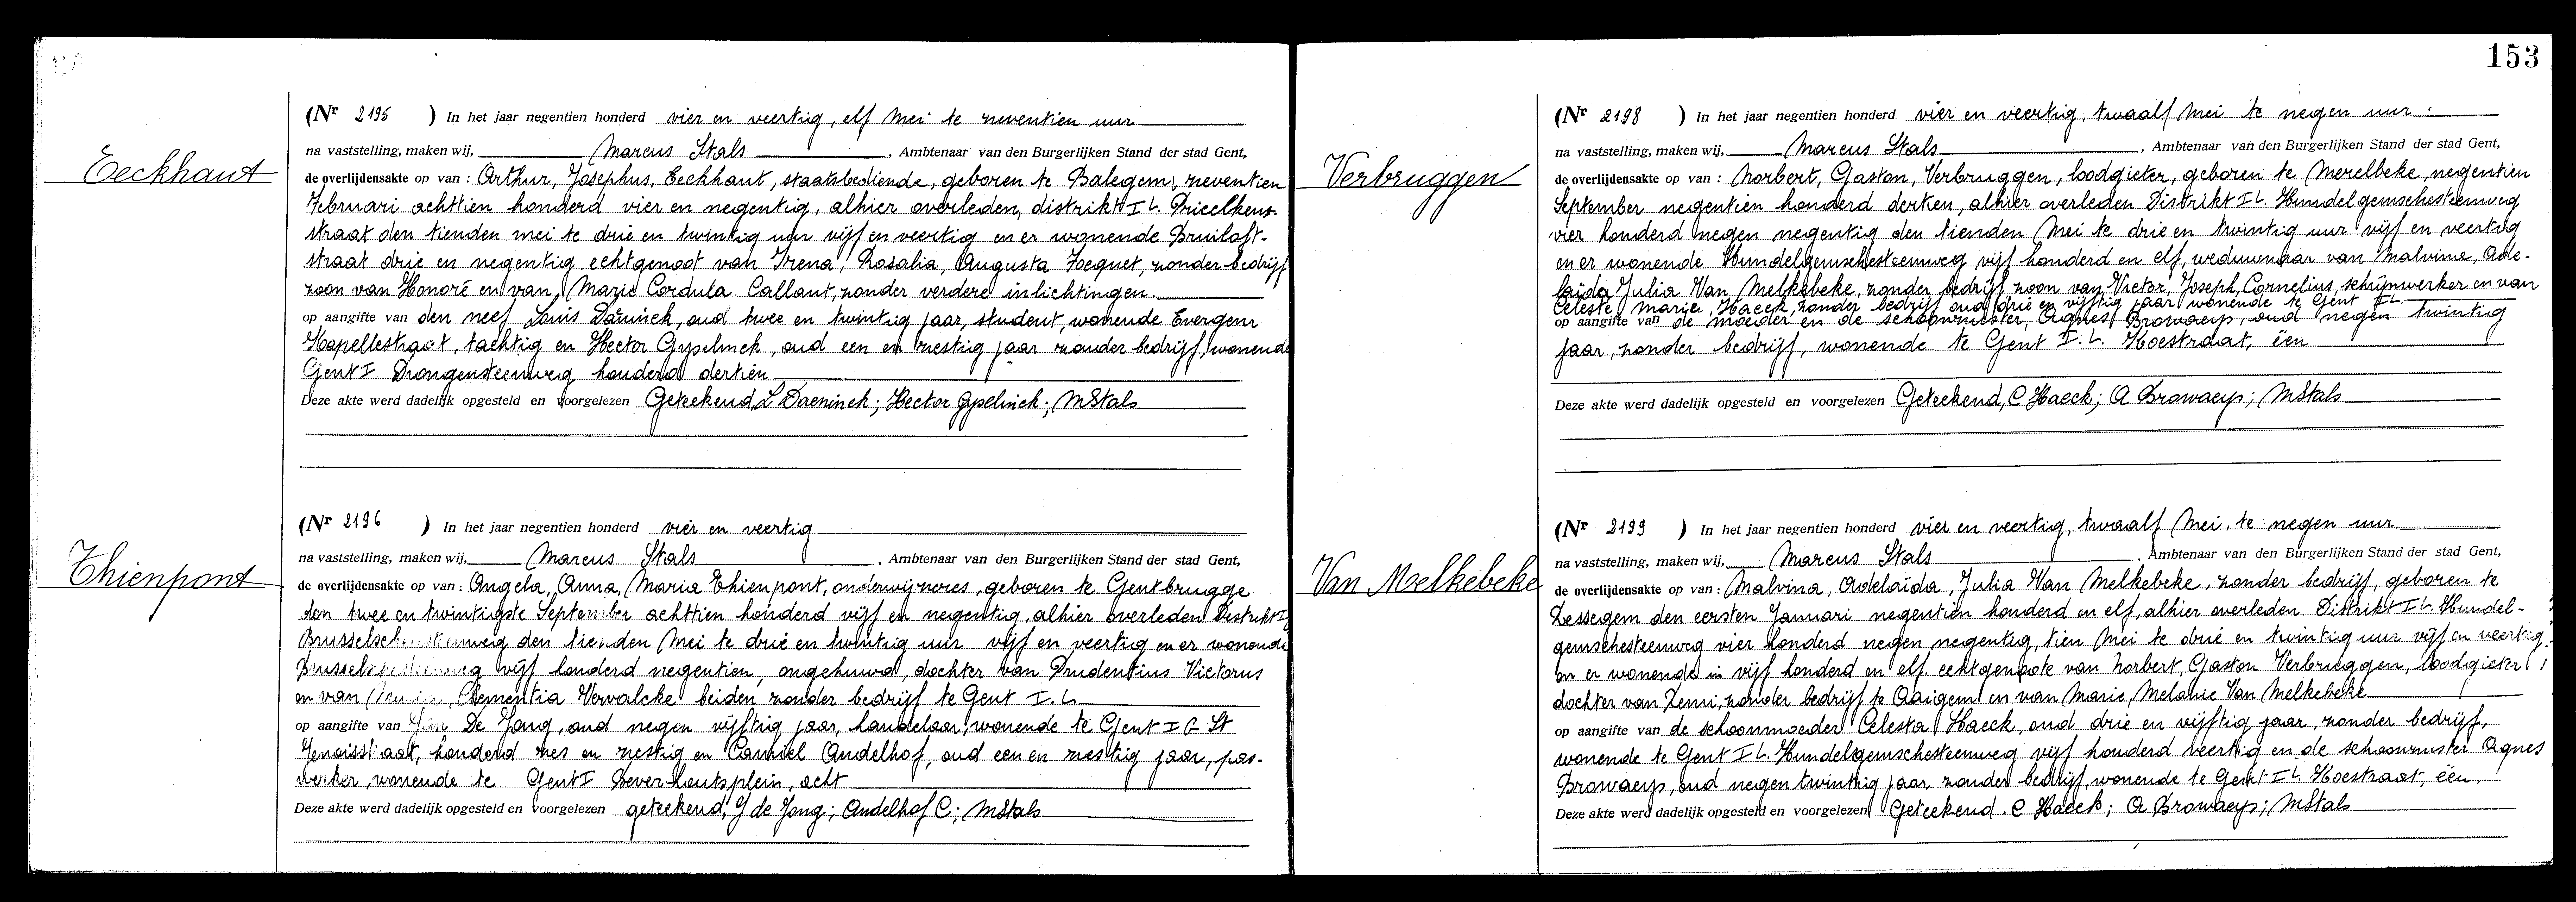 153
Eeckhaut
(Nr 2195 ) In het jaar negentien honderd vier en veertig, elf Mei te zeventien uur
na vaststelling, maken wij, Marcus Stals, Ambtenaar van den Burgerlijken Stand der stad Gent,
de overlijdensakte op van : Arthur, Josephus, Eeckhaut, staatsbediende, geboren te Balegem, zeventien
Februari achttien honderd vier en negentig, alhier overleden, distrikt I L. Prieelkens-
straat den tienden mei te drie en twintig uur vijf en veertig en er wonende Bruiloft-
straat drie en negentig echtgenoot van Irena, Rosalia, Augusta, zonder bedrijf
zoon van Honoré en van, Marie Cordula Callant, zonder verdere inlichtingen.
op aangifte van den neef Louis, oud twee en twintig jaar, student, wonende Evergem
Kapellestraat, tachtig en Hector Gyselinck, oud een en zestig jaar zonder bedrijf, wonende
Gent I Drongensteenweg honderd dertien
Deze akte werd dadelijk opgesteld en voorgelezen Geteekend, L Daeninck; Hector Gyselinck; MStals
Thienpont
(Nr 2196 ) In het jaar negentien honderd vier en veertig
na vaststelling, maken wij, Marcus Stals. Ambtenaar van den Burgerlijken Stand der stad Gent,
de overlijdensakte op van : Angela, Anna, Maria Thienpont, onderwijzeres, geboren te Gentbrugge
den twee en twintigste September achttien honderd vijf en negentig, alhier overleden Distrikt I
den tienden Mei te drie en twintig uur vijf en veertig en er wonende
vijf honderd negentien, ongehuwd, dochter van Prudentius Victorus
en van Clementia Vervalcke beiden zonder bedrijf te Gent I. L.
op aangifte van De Jong, oud negen vijftig jaar, handelaar, wonende te Gent I G St
Genoisstraat, honderd zes en zestig en Camiel Audelhof, oud een en zestig jaar, pas-
werker, wonende te Gent I Beverhoutsplein, acht
Deze akte werd dadelijk opgesteld en voorgelezen geteekend, J de Jong; Audelhof C; MStals
Verbruggen
(Nr 2198 ) In het jaar negentien honderd vier en veertig, twaalf Mei te negen uur
na vaststelling, maken wij, Marcus Stals, Ambtenaar van den Burgerlijken Stand der stad Gent,
de overlijdensakte op van : Norbert, Gaston, Verbruggen, loodgieter, geboren te Merelbeke, negentien
September negentien honderd dertien, alhier overleden Distrikt I L. Hundelgemschesteenweg
vier honderd negen negentig den tienden Mei te drie en twintig uur vijf en veertig
en er wonende Hundelgemschesteenweg vijf honderd en elf, weduwnaar van Malvina, Ade-
laïda Julia Van Melkebeke, zonder bedrijf, zoon van Victor, Joseph, Cornelius, schrijnwerker en van
Celeste Marie, Haeck, zonder bedrijf oud drie en vijftig jaar wonende te Gent I L.
op aangifte van de moeder en de schoonzuster, Agnes Browaeys, oud negen twintig
jaar, zonder bedrijf, wonende te Gent I. L. Koestraat, één
Deze akte werd dadelijk opgesteld en voorgelezen Geteekend, C Haeck; A Browaeys; MStals
Van Melkebeke
(Nr 2199 ) In het jaar negentien honderd vier en veertig, twaalf Mei, te negen uur
na vaststelling, maken wij, Marcus Stals. Ambtenaar van den Burgerlijken Stand der stad Gent,
de overlijdensakte op van : Malvina, Adelaïda, Julia Van Melkebeke, zonder bedrijf, geboren te
den eersten Januari negentien honderd en elf, alhier overleden Distrikt I L. Hundel-
gemschesteenweg vier honderd negen negentig, tien Mei te drie en twintig uur vijf en veertig
en er wonende in vijf honderd en elf, echtgenoote van Norbert, Gaston Verbruggen, loodgieter
dochter van Remi, zonder bedrijf te Oaigem en van Marie, Melanie Van Melkebeke
op aangifte van de schoonmoeder Celesta Haeck, oud drie en vijftig jaar zonder bedrijf,
wonende te Gent I L. Hundelgemschesteenweg vijf honderd veertig en de schoonzuster Agnes
Browaeys, oud negen twintig jaar, zonder bedrijf, wonende te Gent I L Koestraat, één,
Deze akte werd dadelijk opgesteld en voorgelezen Geteekend. C Haeck; A Browaeys; MStals